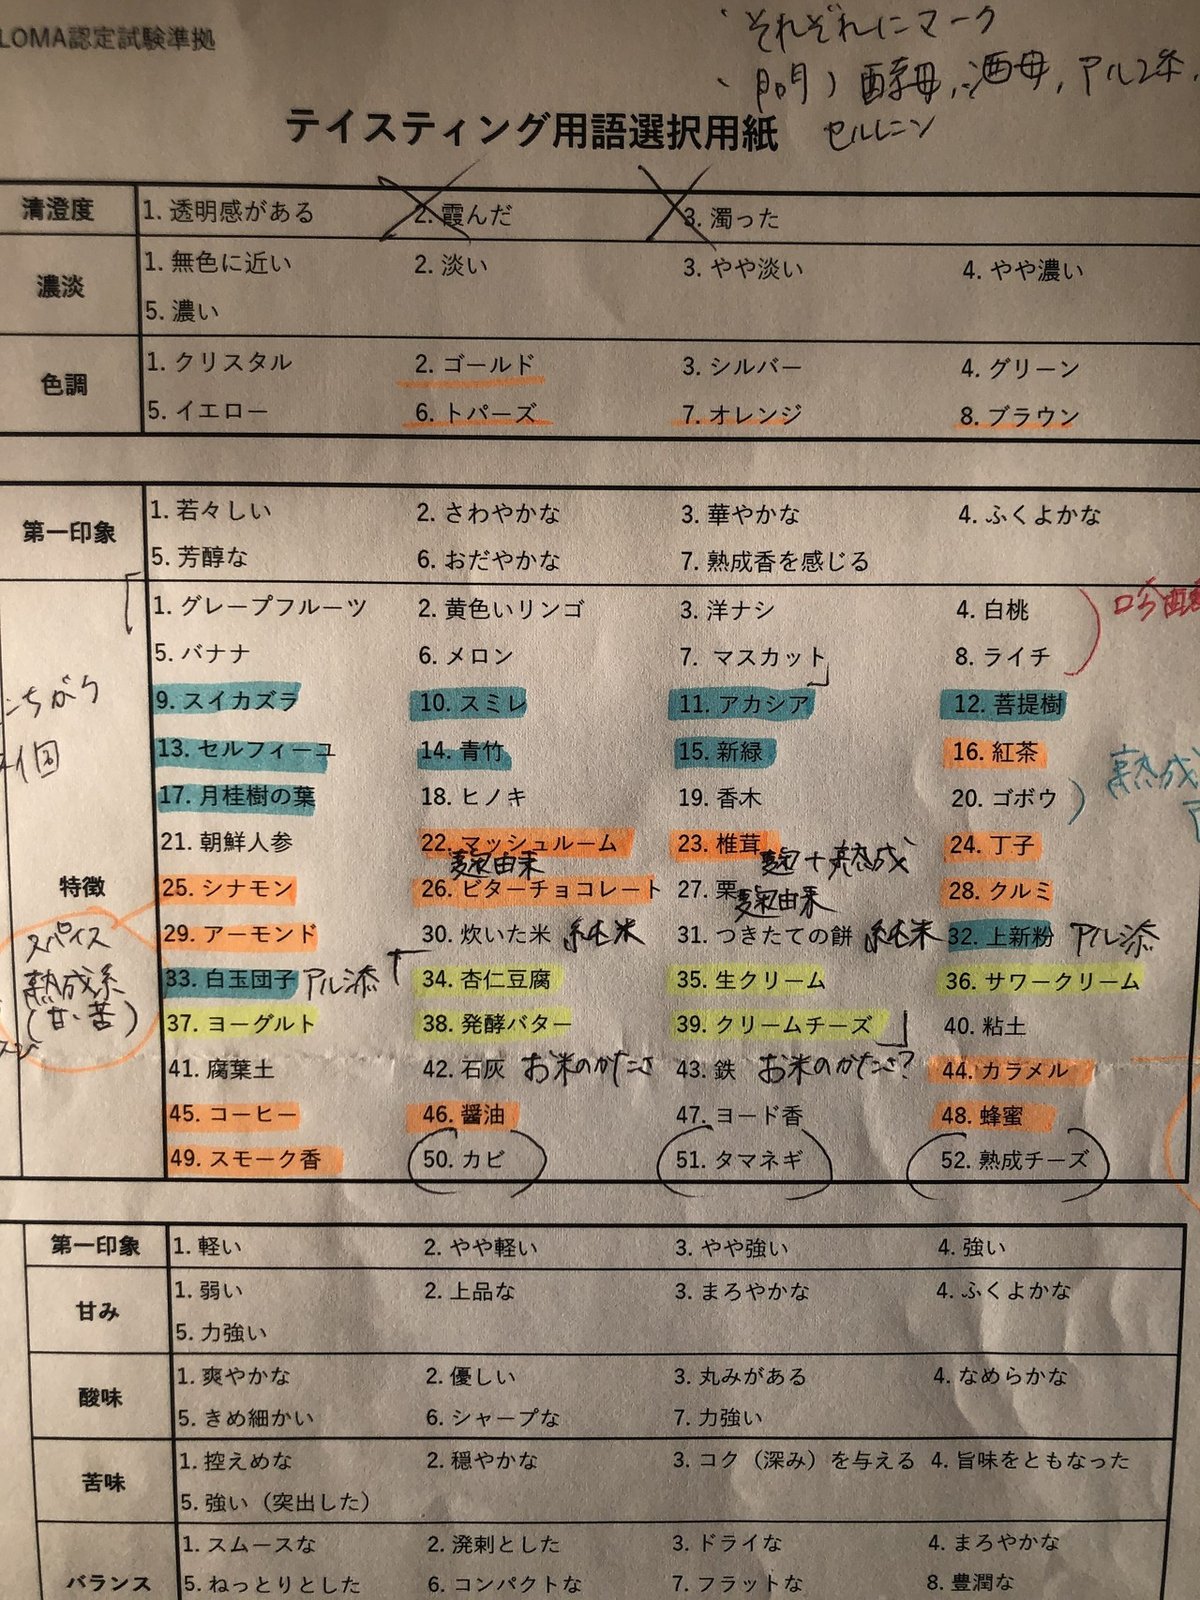 LOMA認定試験準拠
・それぞれにマーク
・問）酵母，酒母，アル添，
セルレニン
テイスティング用語選択用紙
清澄度 1. 透明感がある 2. 霞んだ 3. 濁った
濃淡 1. 無色に近い 2. 淡い 3. やや淡い 4. やや濃い
5. 濃い
色調 1. クリスタル 2. ゴールド 3. シルバー 4. グリーン
5. イエロー 6. トパーズ 7. オレンジ 8. ブラウン
第一印象 1. 若々しい 2. さわやかな 3. 華やかな 4. ふくよかな
5. 芳醇な 6. おだやかな 7. 熟成香を感じる
特徴 1. グレープフルーツ 2. 黄色いリンゴ 3. 洋ナシ 4. 白桃 吟醸
5. バナナ 6. メロン 7. マスカット 8. ライチ
9. スイカズラ 10. スミレ 11. アカシア 12. 菩提樹
13. セルフィーユ 14. 青竹 15. 新緑 16. 紅茶 熟成
17. 月桂樹の葉 18. ヒノキ 19. 香木 20. ゴボウ
21. 朝鮮人参 22. マッシュルーム 23. 椎茸 24. 丁子
麹由来 麹＋熟成
25. シナモン 26. ビターチョコレート 27. 栗 28. クルミ
麹由来
29. アーモンド 30. 炊いた米 純米 31. つきたての餅 純米 32. 上新粉 アル添
33. 白玉団子 アル添 34. 杏仁豆腐 35. 生クリーム 36. サワークリーム
37. ヨーグルト 38. 発酵バター 39. クリームチーズ 40. 粘土
41. 腐葉土 42. 石灰 お米のかたさ 43. 鉄 お米のかたさ? 44. カラメル
45. コーヒー 46. 醤油 47. ヨード香 48. 蜂蜜
49. スモーク香 50. カビ 51. タマネギ 52. 熟成チーズ
スパイス
熟成系
（甘・苦）
第一印象 1. 軽い 2. やや軽い 3. やや強い 4. 強い
甘み 1. 弱い 2. 上品な 3. まろやかな 4. ふくよかな
5. 力強い
酸味 1. 爽やかな 2. 優しい 3. 丸みがある 4. なめらかな
5. きめ細かい 6. シャープな 7. 力強い
苦味 1. 控えめな 2. 穏やかな 3. コク（深み）を与える 4. 旨味をともなった
5. 強い（突出した）
バランス 1. スムースな 2. 溌剌とした 3. ドライな 4. まろやかな
5. ねっとりとした 6. コンパクトな 7. フラットな 8. 豊潤な